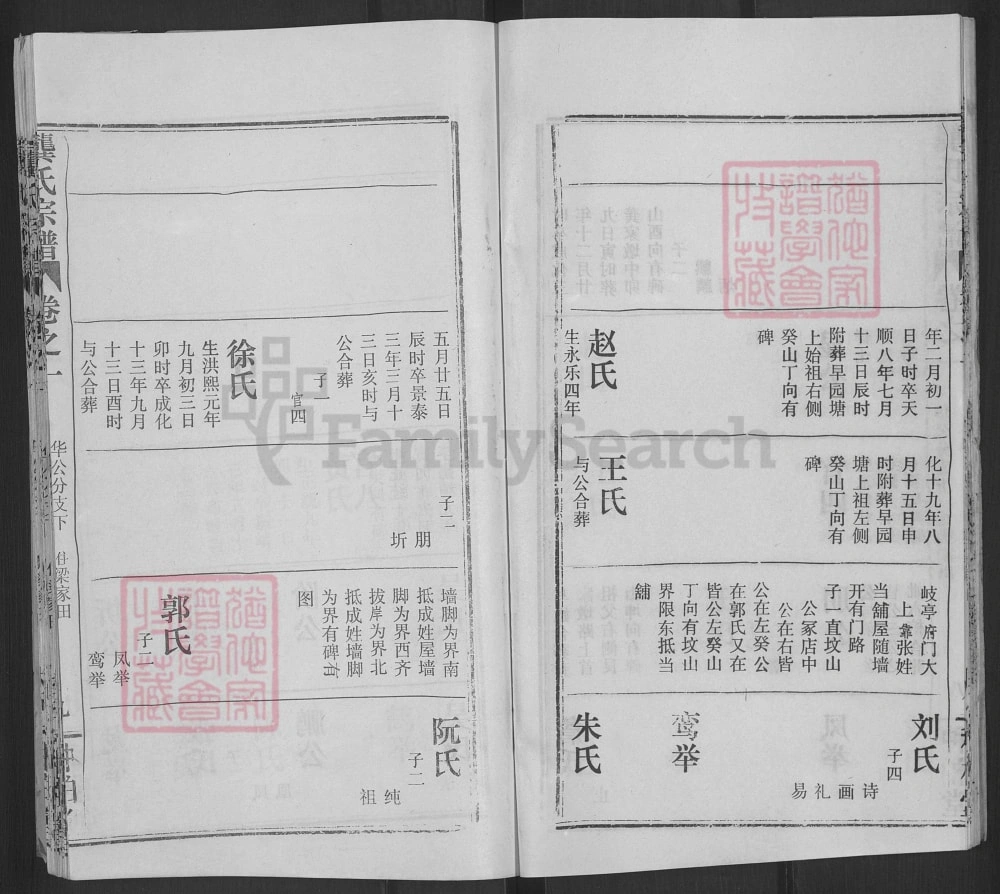 年二月初一
日子时卒天
顺八年七月
十三日辰时
附葬早园塘
上始祖右侧
癸山丁向有
碑
赵氏
生永乐四年
化十九年八
月十五日申
时附葬早园
塘上祖左侧
癸山丁向有
碑
王氏
与公合葬
岐亭府门大
上靠张姓
当舖屋随墙
开有门路
子一直坟山
公冢店中
公在右皆
公在左癸公
在郭氏又在
皆公左癸山
丁向有坟山
界限东抵当
舖
刘氏
子四
诗画礼易
鸾举
朱氏
五月廿五日
辰时卒景泰
三年三月十
三日亥时与
公合葬
子一
官四
徐氏
生洪熙元年
九月初三日
卯时卒成化
十三年九月
十三日酉时
与公合葬
子二
朋
圻
墙脚为界南
抵成姓屋墙
脚为界西齐
拔岸为界北
抵成姓墙脚
为界有碑有
图
郭氏
子二
凤举
鸾举
阮氏
子二
纯
祖
龚氏宗谱
卷之一
华公分支下
住梁家田
FamilySearch